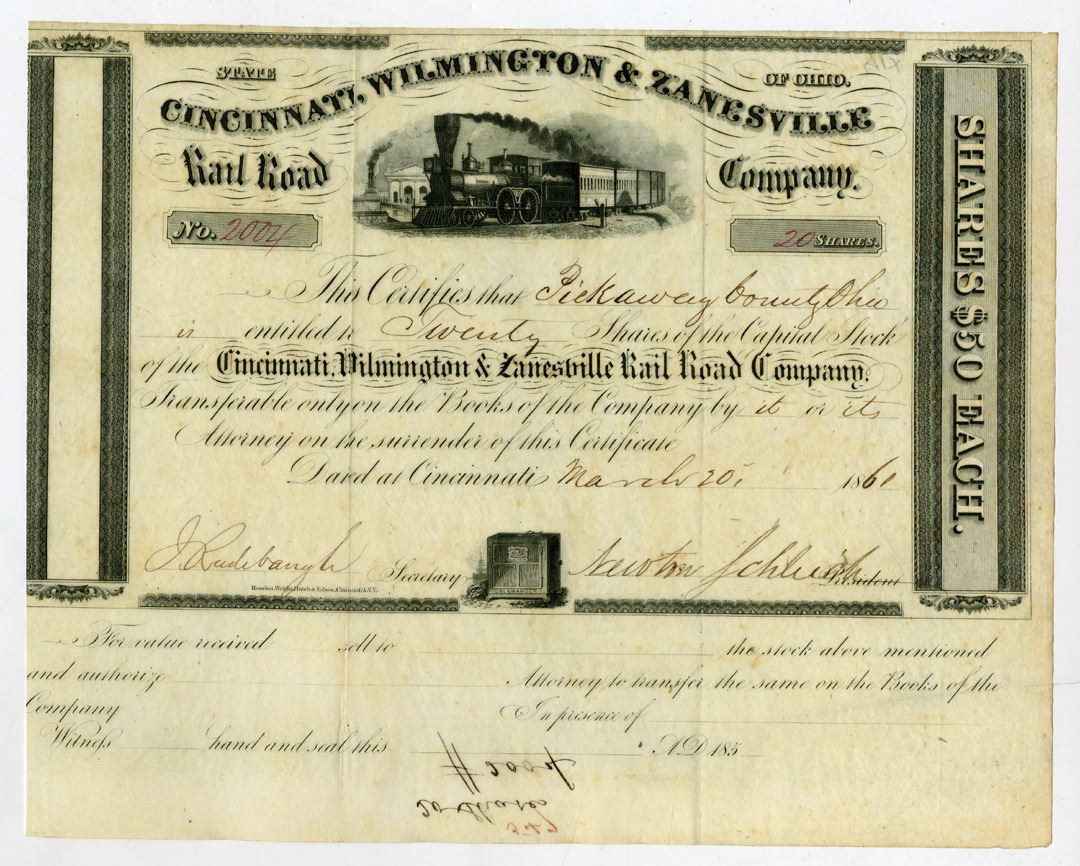 STATE OF OHIO.
CINCINNATI, WILMINGTON & ZANESVILLE
Rail Road Company.
No. 2004
20 SHARES.
This Certifies that Pickaway County Ohio
is entitled to Twenty Shares of the Capital Stock
of the Cincinnati, Wilmington & Zanesville Rail Road Company.
Transferable only on the Books of the Company by it or its
Attorney on the surrender of this Certificate
Dated at Cincinnati March 20, 1861
J. Radebaugh Secretary
SALAMANDER
Newton Schleich President
Rawdon, Wright, Hatch & Edson, Cincinnati & N.Y.
SHARES $50 EACH.
For value received sell to the stock above mentioned
and authorize Attorney to transfer the same on the Books of the
Company In presence of
Witness hand and seal this A.D. 185
# 2004
20 shares